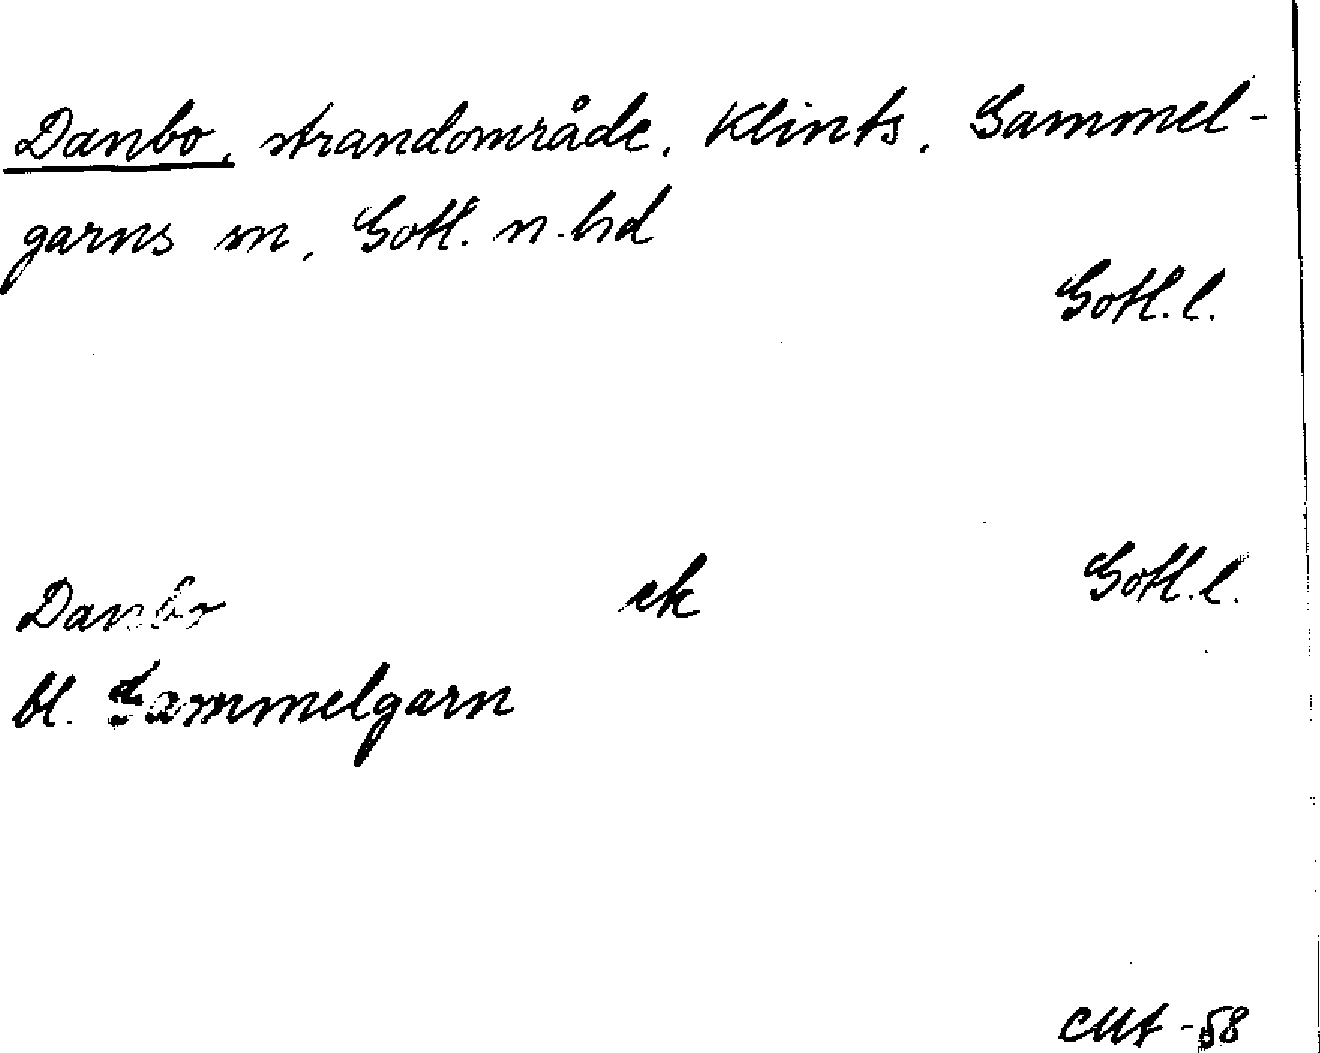 Danbo, strandområde, Klints, Gammel-
garns sn, Gotl. n. hd
Gotl. l.
Danbo ek Gotl. l.
bl. Gammelgarn
-58